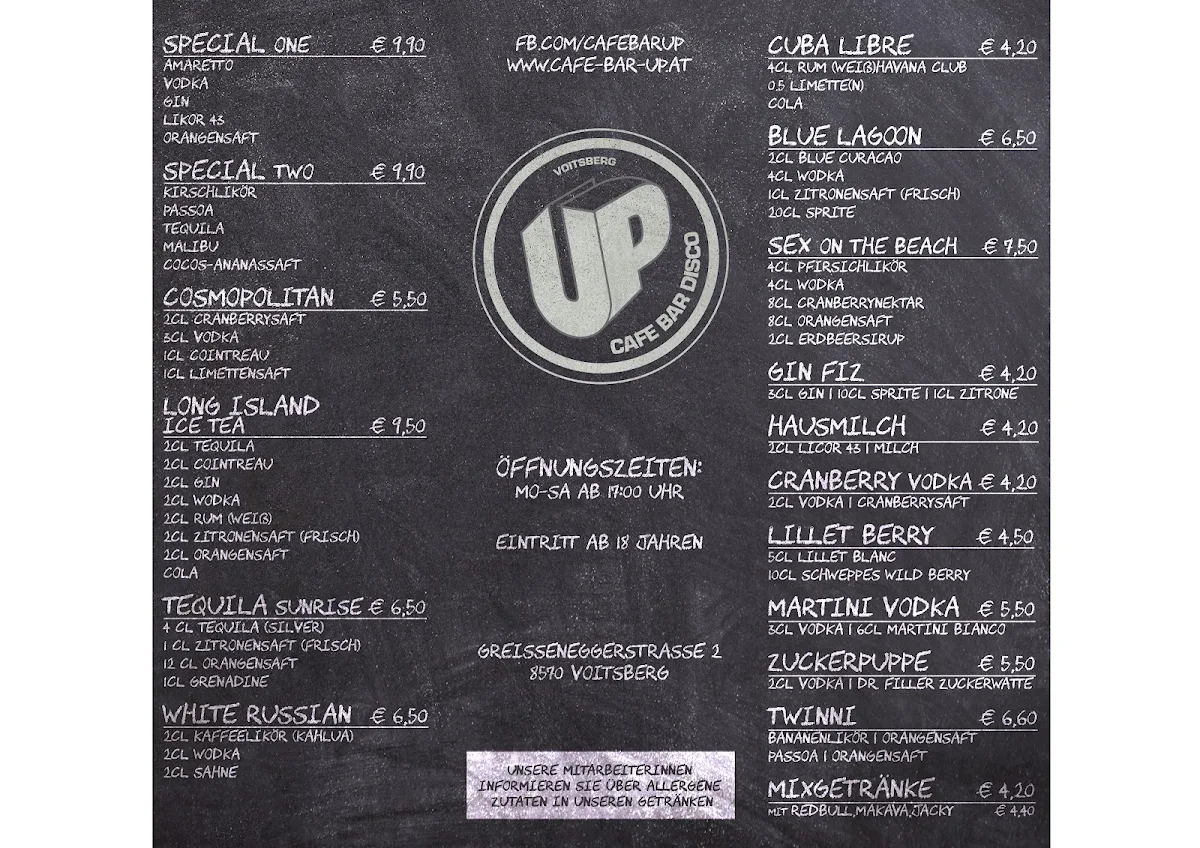 SPECIAL ONE € 9,90
AMARETTO
VODKA
GIN
LIKÖR 43
ORANGENSAFT
SPECIAL TWO € 9,90
KIRSCHLIKÖR
PASSOA
TEQUILA
MALIBU
COCOS-ANANASSAFT
COSMOPOLITAN € 5,50
2CL CRANBERRYSAFT
3CL VODKA
1CL COINTREAU
1CL LIMETTENSAFT
LONG ISLAND
ICE TEA € 9,50
2CL TEQUILA
2CL COINTREAU
2CL GIN
2CL WODKA
2CL RUM (WEIß)
2CL ZITRONENSAFT (FRISCH)
2CL ORANGENSAFT
COLA
TEQUILA SUNRISE € 6,50
4 CL TEQUILA (SILVER)
1 CL ZITRONENSAFT (FRISCH)
12 CL ORANGENSAFT
1CL GRENADINE
WHITE RUSSIAN € 6,50
2CL KAFFEELIKÖR (KAHLUA)
2CL WODKA
2CL SAHNE
FB.COM/CAFEBARUP
WWW.CAFE-BAR-UP.AT
VOITSBERG
UP
CAFE BAR DISCO
ÖFFNUNGSZEITEN:
MO-SA AB 17:00 UHR
EINTRITT AB 18 JAHREN
GREISSENEGGERSTRASSE 2
8570 VOITSBERG
UNSERE MITARBEITERINNEN
INFORMIEREN SIE ÜBER ALLERGENE
ZUTATEN IN UNSEREN GETRÄNKEN
CUBA LIBRE € 4,20
4CL RUM (WEIß)HAVANA CLUB
0.5 LIMETTE(N)
COLA
BLUE LAGOON € 6,50
2CL BLUE CURACAO
4CL WODKA
1CL ZITRONENSAFT (FRISCH)
20CL SPRITE
SEX ON THE BEACH € 7,50
4CL PFIRSICHLIKÖR
4CL WODKA
8CL CRANBERRYNEKTAR
8CL ORANGENSAFT
2CL ERDBEERSIRUP
GIN FIZ € 4,20
3CL GIN | 10CL SPRITE | 1CL ZITRONE
HAUSMILCH € 4,20
2CL LICOR 43 | MILCH
CRANBERRY VODKA € 4,20
2CL VODKA | CRANBERRYSAFT
LILLET BERRY € 4,50
5CL LILLET BLANC
10CL SCHWEPPES WILD BERRY
MARTINI VODKA € 5,50
3CL VODKA | 6CL MARTINI BIANCO
ZUCKERPUPPE € 5,50
2CL VODKA | DR. FILLER ZUCKERWATTE
TWINNI € 6,60
BANANENLIKÖR | ORANGENSAFT
PASSOA | ORANGENSAFT
MIXGETRÄNKE € 4,20
MIT REDBULL,MAKAVA,JACKY € 4,40